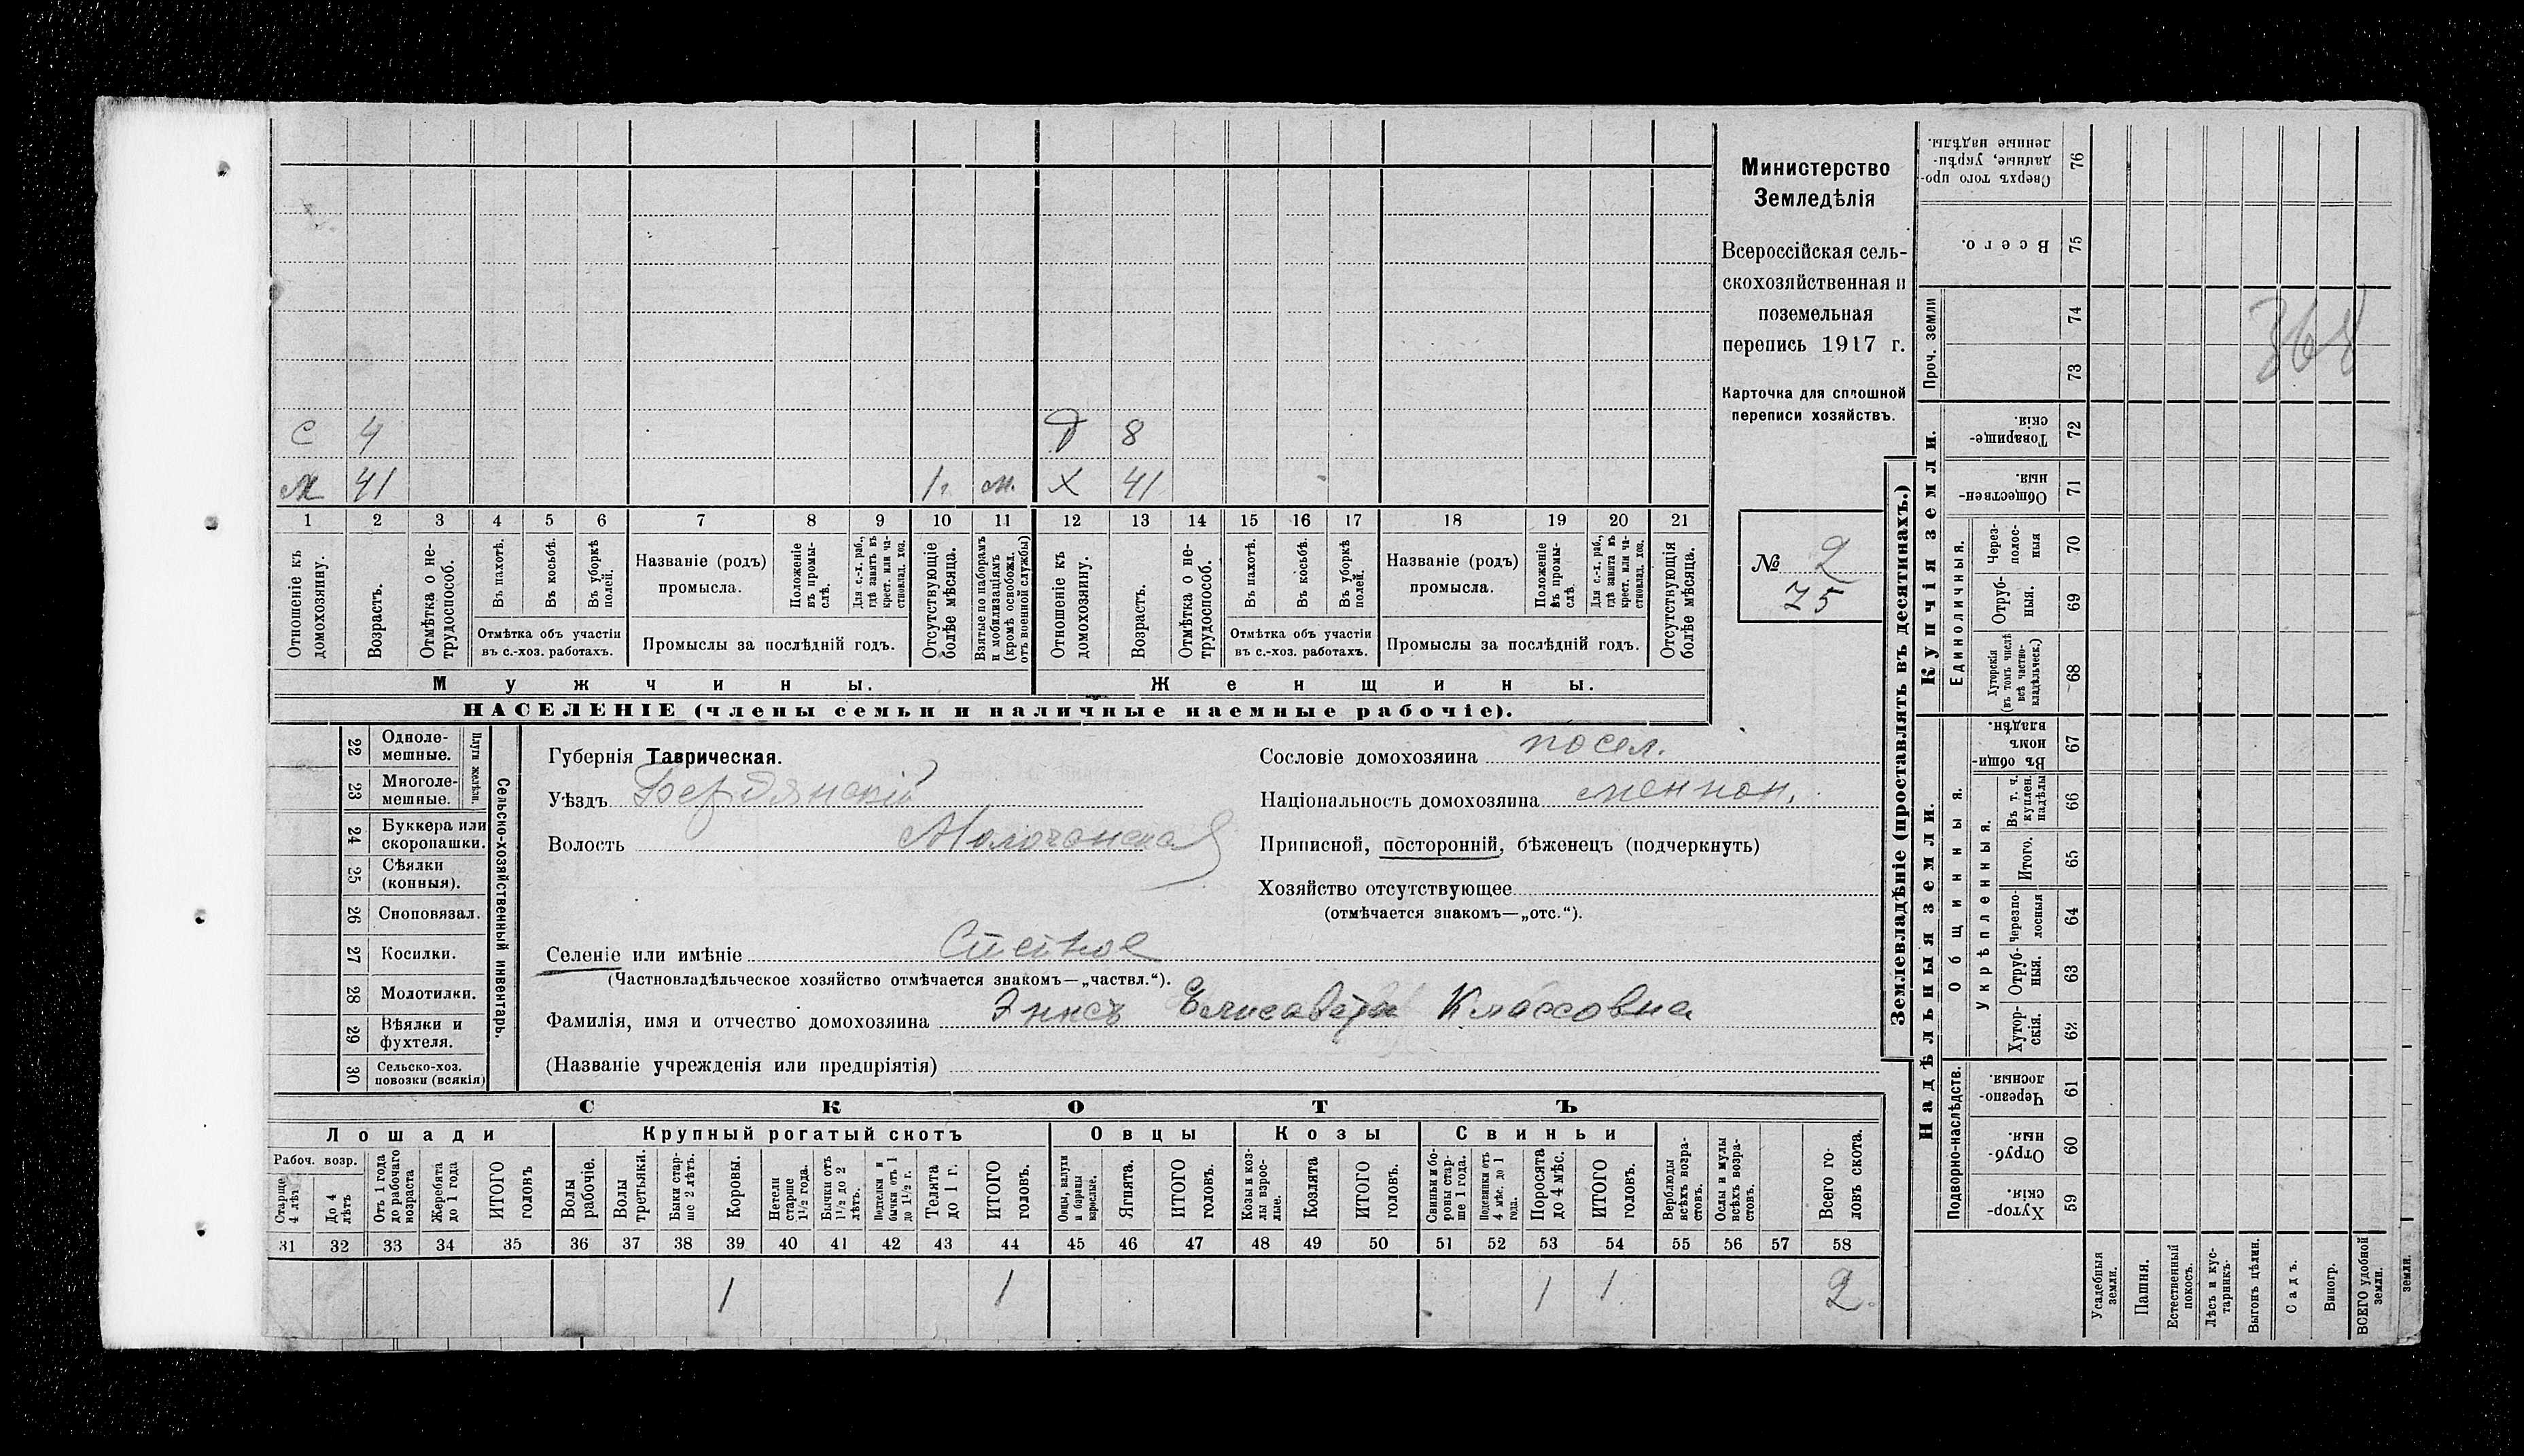 С 4 Д 8
М 41 1 г. м. Х 41
1 2 3 4 5 6 7 8 9 10 11 12 13 14 15 16 17 18 19 20 21
Отношеніе къ домохозяину.
Возрастъ.
Отмѣтка о не-трудоспособ.
Въ пахотѣ.
Въ косьбѣ.
Въ уборкѣ полей.
Отмѣтка объ участіи
въ с.-хоз. работахъ.
Названіе (родъ)
промысла.
Положеніе въ промы-слѣ.
Для с.-х. раб., гдѣ занятъ въ крест. или ча-стновлад. хоз.
Промыслы за послѣдній годъ.
Отсутствующіе болѣе мѣсяца.
Взятые по наборамъ и мобилизаціямъ (кромѣ освобожд. отъ военной службы)
Отношеніе къ домохозяину.
Возрастъ.
Отмѣтка о не-трудоспособ.
Въ пахотѣ.
Въ косьбѣ.
Въ уборкѣ полей.
Отмѣтка объ участіи
въ с.-хоз. работахъ.
Названіе (родъ)
промысла.
Положеніе въ промы-слѣ.
Для с.-х. раб., гдѣ занята въ крест. или ча-стновлад. хоз.
Промыслы за послѣдній годъ.
Отсутствующія болѣе мѣсяца.
Мужчины. Женщины.
НАСЕЛЕНІЕ (члены семьи и наличные наемные рабочіе).
Министерство
Земледѣлія
Всероссійская сель-
скохозяйственная и
поземельная
перепись 1917 г.
Карточка для сплошной
переписи хозяйствъ.
№ 2
75
22 Одноле-мешные. Плуги желѣзн.
23 Многоле-мешные.
24 Буккера или скоропашки.
25 Сѣялки (конныя).
26 Сноповязал.
27 Косилки.
28 Молотилки.
29 Вѣялки и фухтеля.
30 Сельско-хоз. повозки (всякія)
Сельско-хозяйственный инвентарь.
Губернія Таврическая.
Уѣздъ Бердянскій
Волость Молочанская
Селеніе или имѣніе
(Частновладѣльческое хозяйство отмѣчается знакомъ—„частвл.“).
Фамилія, имя и отчество домохозяина Эннсъ Елисавета Классовна
(Названіе учрежденія или предпріятія)
Сословіе домохозяина посел.
Національность домохозяина меннон.
Приписной, посторонній, бѣженецъ (подчеркнуть)
Хозяйство отсутствующее
(отмѣчается знакомъ—„отс.“).
СКОТЪ
Лошади Крупный рогатый скотъ Овцы Козы Свиньи
Рабоч. возр.
Старше 4 лѣтъ
До 4 лѣтъ
Отъ 1 года до рабочаго возраста
Жеребята до 1 года
ИТОГО головъ
Волы рабочіе.
Волы третьяки.
Быки стар-ше 2 лѣтъ.
Коровы.
Нетели старше 1½ года.
Бычки отъ 1½ до 2 лѣтъ.
Подтелки и бычки отъ 1 до 1½ г.
Телята до 1 г.
ИТОГО головъ.
Овцы, валухи и бараны взрослые.
Ягнята.
ИТОГО головъ.
Козы и коз-лы взрос-лые.
Козлята
ИТОГО головъ.
Свиньи и бо-ровы стар-ше 1 года.
Подсвинки отъ 4 мѣс. до 1 года.
Поросята до 4 мѣс.
ИТОГО головъ.
Верблюды всѣхъ возра-стовъ.
Ослы и мулы всѣхъ возра-стовъ.
Всего го-ловъ скота.
31 32 33 34 35 36 37 38 39 40 41 42 43 44 45 46 47 48 49 50 51 52 53 54 55 56 57 58
1 1 1 1 2
Землевладѣніе (проставлять въ десятинахъ.)
Купчія земли.
Надѣльныя земли.
Сверхъ того про-данные, укрѣп-ленные надѣлы. 76
Всего. 75
Проч. земли 74
73
Товарище-скія. 72
Обществен-ныя. 71
Единоличныя.
Через-полос-ныя 70
Отруб-ныя. 69
Хуторскія (въ томъ числѣ всѣ частно-владѣльческ.) 68
Общинныя.
Въ общи-номъ владѣн. 67
Укрѣпленныя.
Въ т. ч. куплен. надѣлы 66
Итого. 65
Черезпо-лосныя 64
Отруб-ныя. 63
Хутор-скія. 62
Подворно-наслѣдств.
Черезпо-лосныя 61
Отруб-ныя. 60
Хутор-скія. 59
Усадебныя земли.
Пашня.
Естественный покосъ.
Лѣсъ и кус-тарникъ.
Выгонъ цѣлин.
Садъ.
Виногр.
ВСЕГО удобной земли.
земли.
368